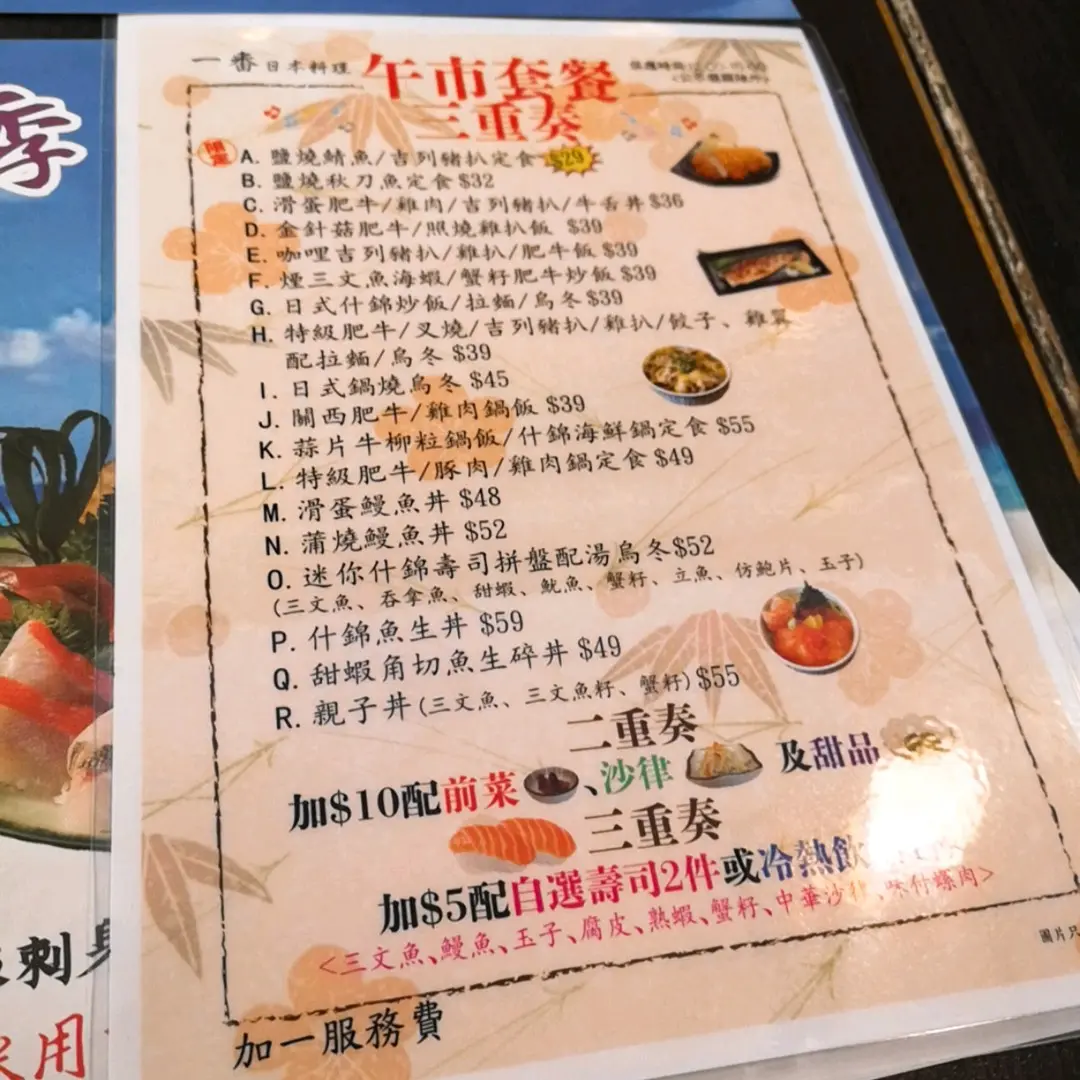 季
一番日本料理
午市套餐
三重奏
優惠時間
限定
A. 鹽燒鯖魚/吉列豬扒定食 $29
B. 鹽燒秋刀魚定食 $32
C. 滑蛋肥牛/雞肉/吉列豬扒/牛舌丼 $36
D. 金針菇肥牛/照燒雞扒飯 $39
E. 咖哩吉列豬扒/雞扒/肥牛飯 $39
F. 煙三文魚海蝦/蟹籽肥牛炒飯 $39
G. 日式什錦炒飯/拉麵/烏冬 $39
H. 特級肥牛/叉燒/吉列豬扒/雞扒/餃子、雞翼
配拉麵/烏冬 $39
I. 日式鍋燒烏冬 $45
J. 關西肥牛/雞肉鍋飯 $39
K. 蒜片牛柳粒鍋飯/什錦海鮮鍋定食 $55
L. 特級肥牛/豚肉/雞肉鍋定食 $49
M. 滑蛋鰻魚丼 $48
N. 蒲燒鰻魚丼 $52
O. 迷你什錦壽司拼盤配湯烏冬 $52
(三文魚、吞拿魚、甜蝦、魷魚、蟹籽、立魚、仿鮑片、玉子)
P. 什錦魚生丼 $59
Q. 甜蝦角切魚生碎丼 $49
R. 親子丼 (三文魚、三文魚籽、蟹籽) $55
二重奏
加$10配前菜、沙律 及甜品
三重奏
加$5配自選壽司2件或冷熱飲
<三文魚、鰻魚、玉子、腐皮、熟蝦、蟹籽、中華沙律、味付螺肉>
圖片只
加一服務費
刺身
用